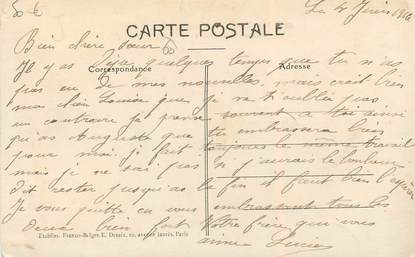 50 €
Le 4 Juin 1916
CARTE POSTALE
Bien chère sœur
Correspondance
Adresse
Il y a déjà quelques temps que tu n'as
pas eu de mes nouvelles, mais crois bien
ma chère Louise que je ne t'oublie pas
au contraire je pense souvent à toi ainsi
qu'as Auguste que tu embrassera bien
pour moi je fait toujours le même travail
mais je ne sai pas si j'aurais le bonheur
dit rester jusqu'as la fin il faut bien l'espérer
Je vous quitte en vous embrassant tous les
deux bien fort Votre frère qui vous
aime Lucien
Etabliss. Franco-Belges E. Desaix, avenue Jaurès, Paris